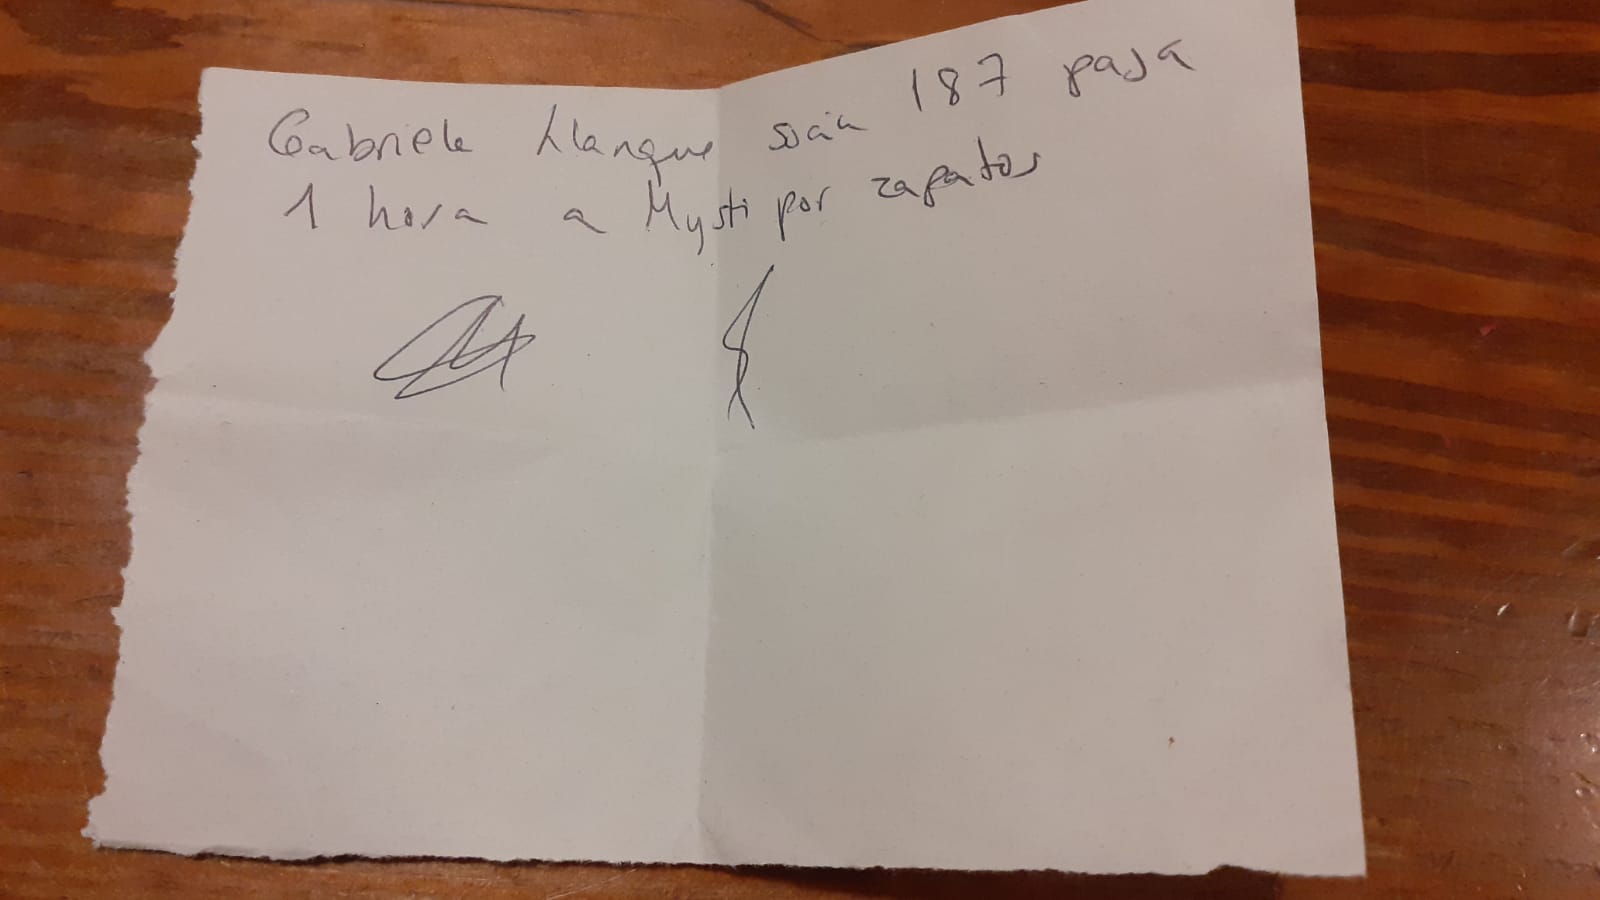 Gabriele Llanque socia 187 pasa
1 hora a Mysti por zapatos